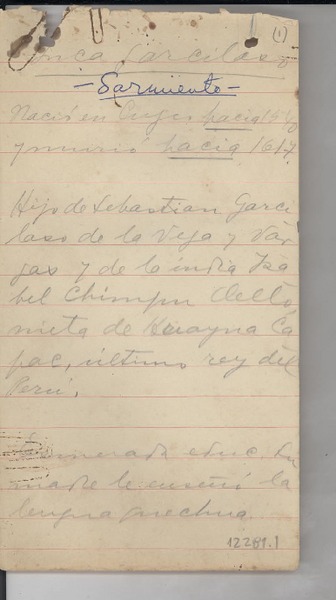 (1)
Inca Garcilaso
- Sarmiento -
Nació en Cuzco hacia
y murió hacia 1617
Hijo de Sebastian Garci
laso de la Vega y Var
gas y de la india Isa
bel Chimpu Oello
nieta de Huayna Ca
pac, último rey del
Perú.
educ. Su
madre le enseñó la
lengua quechua.
12281.1